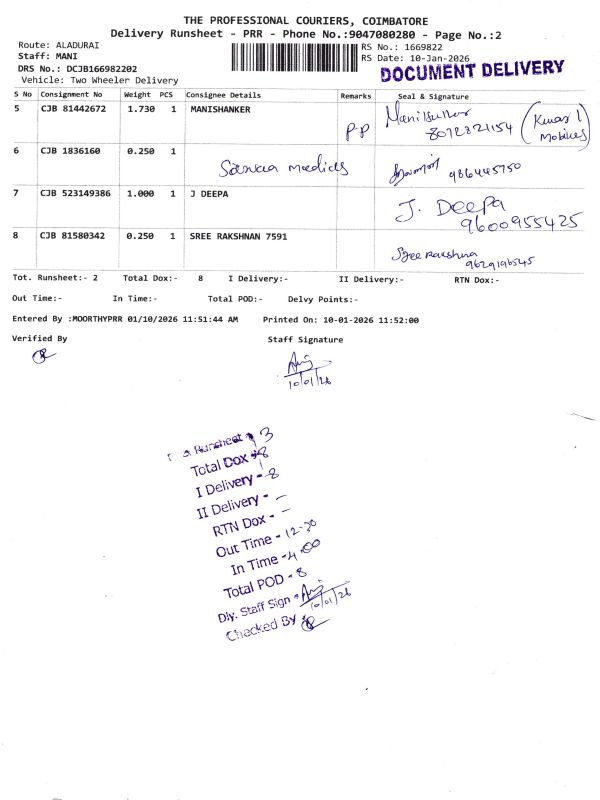 THE PROFESSIONAL COURIERS, COIMBATORE
Delivery Runsheet - PRR - Phone No.:9047080280 - Page No.:2
Route: ALADURAI
Staff: MANI
DRS No.: DCJB166982202
Vehicle: Two Wheeler Delivery
RS No.: 1669822
RS Date: 10-Jan-2026
DOCUMENT DELIVERY
S No Consignment No Weight PCS Consignee Details Remarks Seal & Signature
5 CJB 81442672 1.730 1 MANISHANKER P.P 8072821154
Mobiles
6 CJB 1836160 0.250 1 986445750
7 CJB 523149386 1.000 1 J DEEPA J. Deepa
9600955425
8 CJB 81580342 0.250 1 SREE RAKSHNAN 7591 Sree rakshna
9629196545
Tot. Runsheet:- 2 Total Dox:- 8 I Delivery:- II Delivery:- RTN Dox:-
Out Time:- In Time:- Total POD:- Delvy Points:-
Entered By :MOORTHYPRR 01/10/2026 11:51:44 AM Printed On: 10-01-2026 11:52:00
Verified By Staff Signature
10/01/26
Runsheet 3
Total Dox 8
I Delivery - 8
II Delivery - -
RTN Dox - -
Out Time - 12-30
In Time - 4.00
Total POD - 8
Dly. Staff Sign - 10/01/26
Checked By